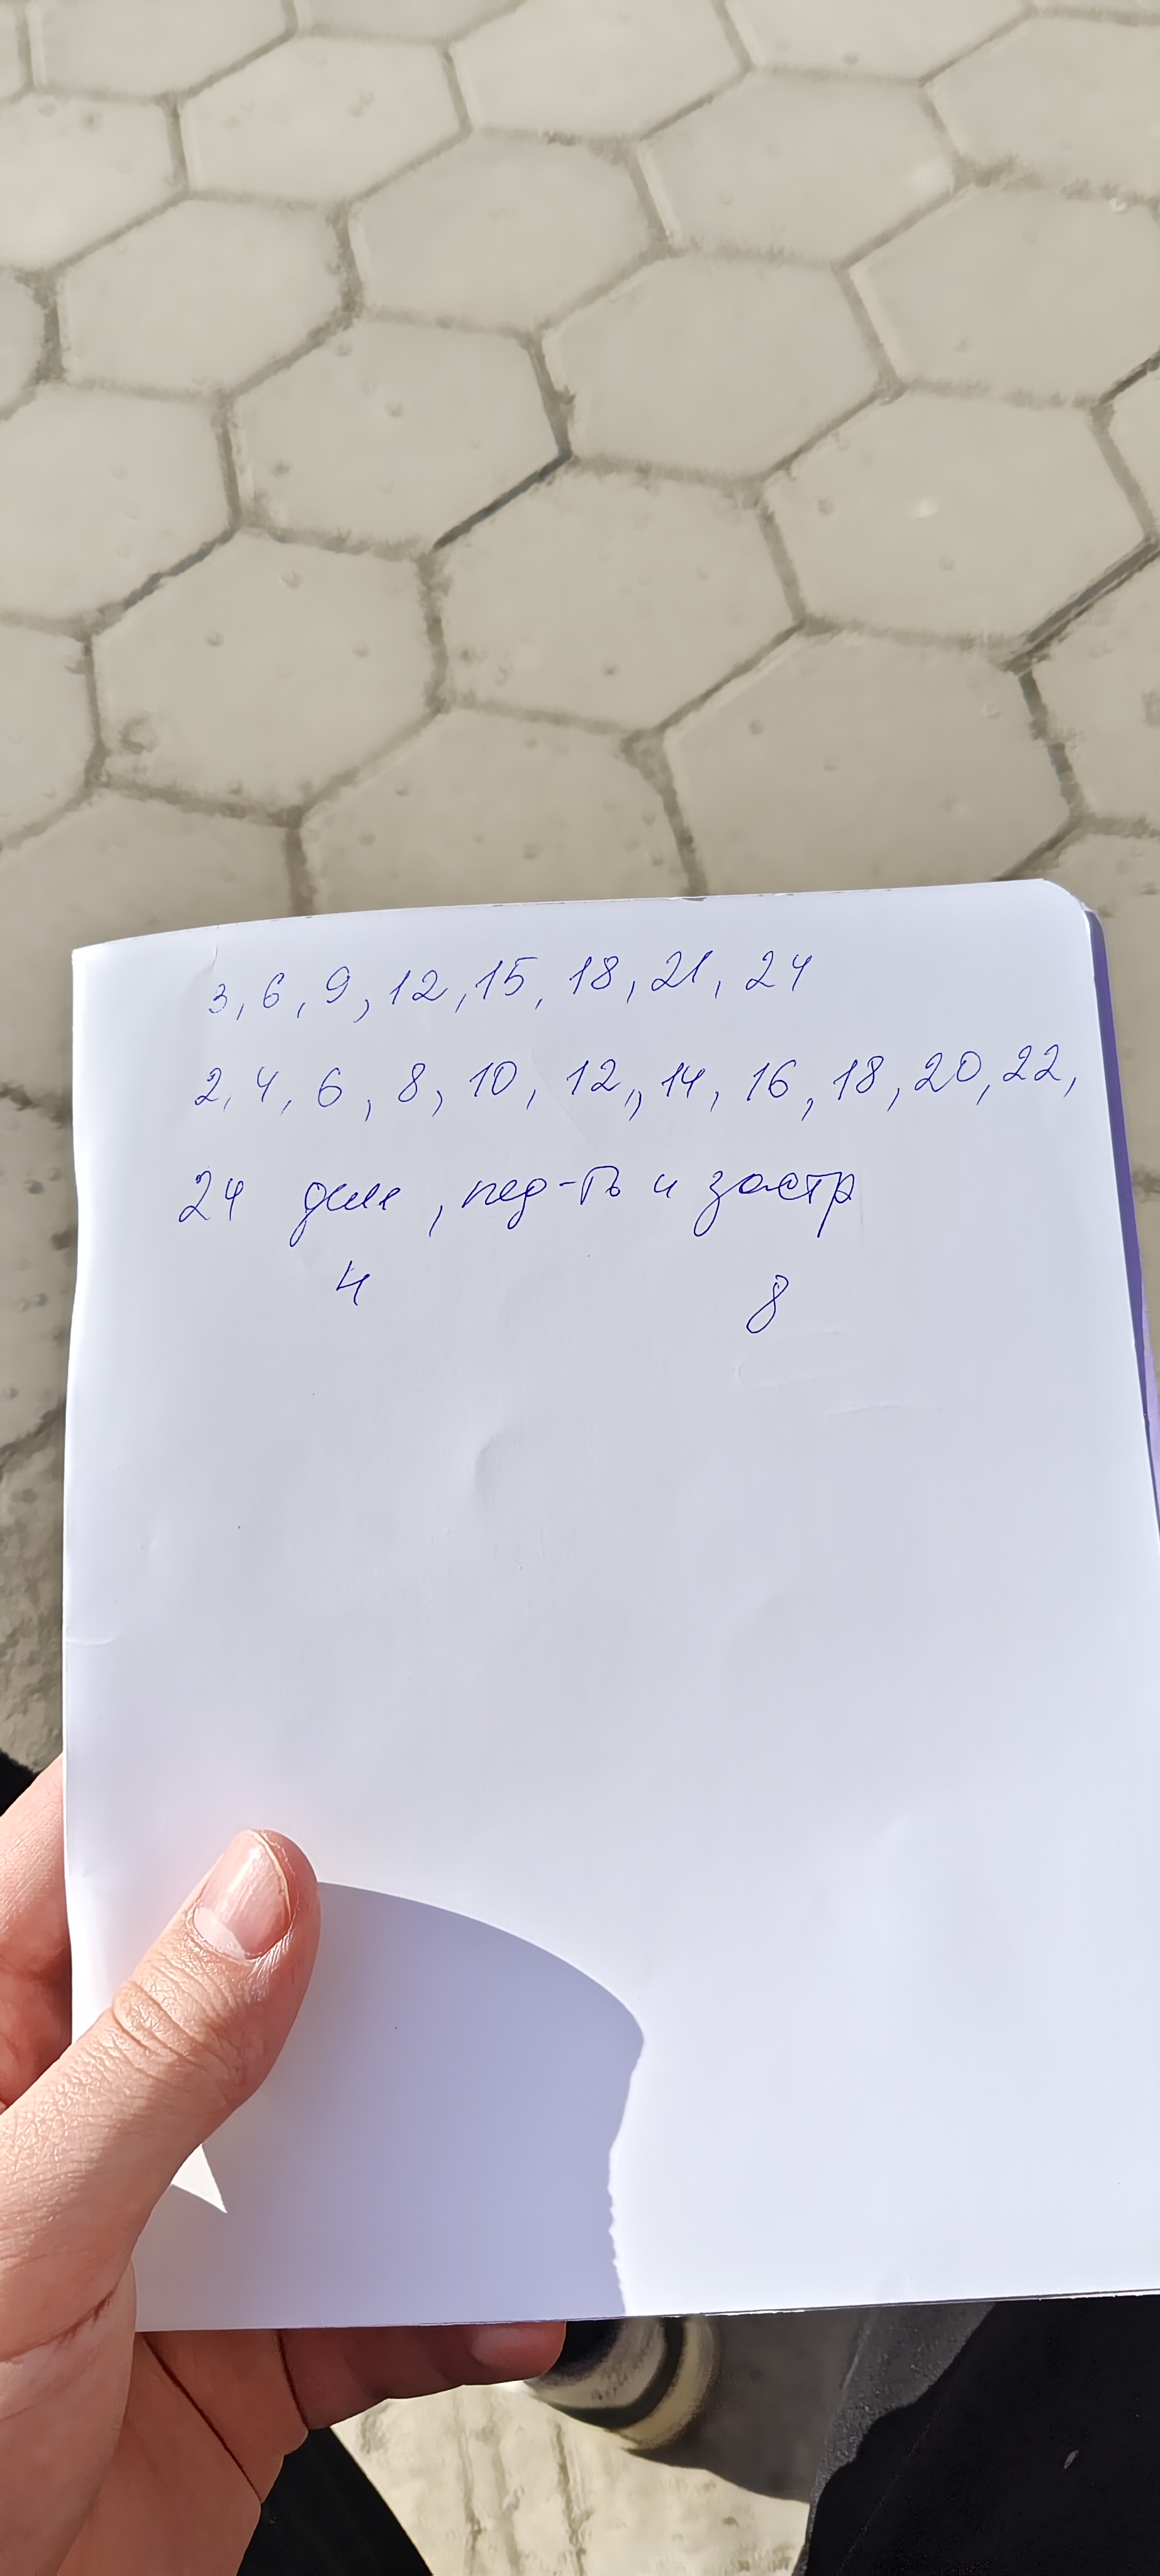 3, 6, 9, 12, 15, 18, 21, 24
2, 4, 6, 8, 10, 12, 14, 16, 18, 20, 22,
24 дем, пед-ть и застр
4 8